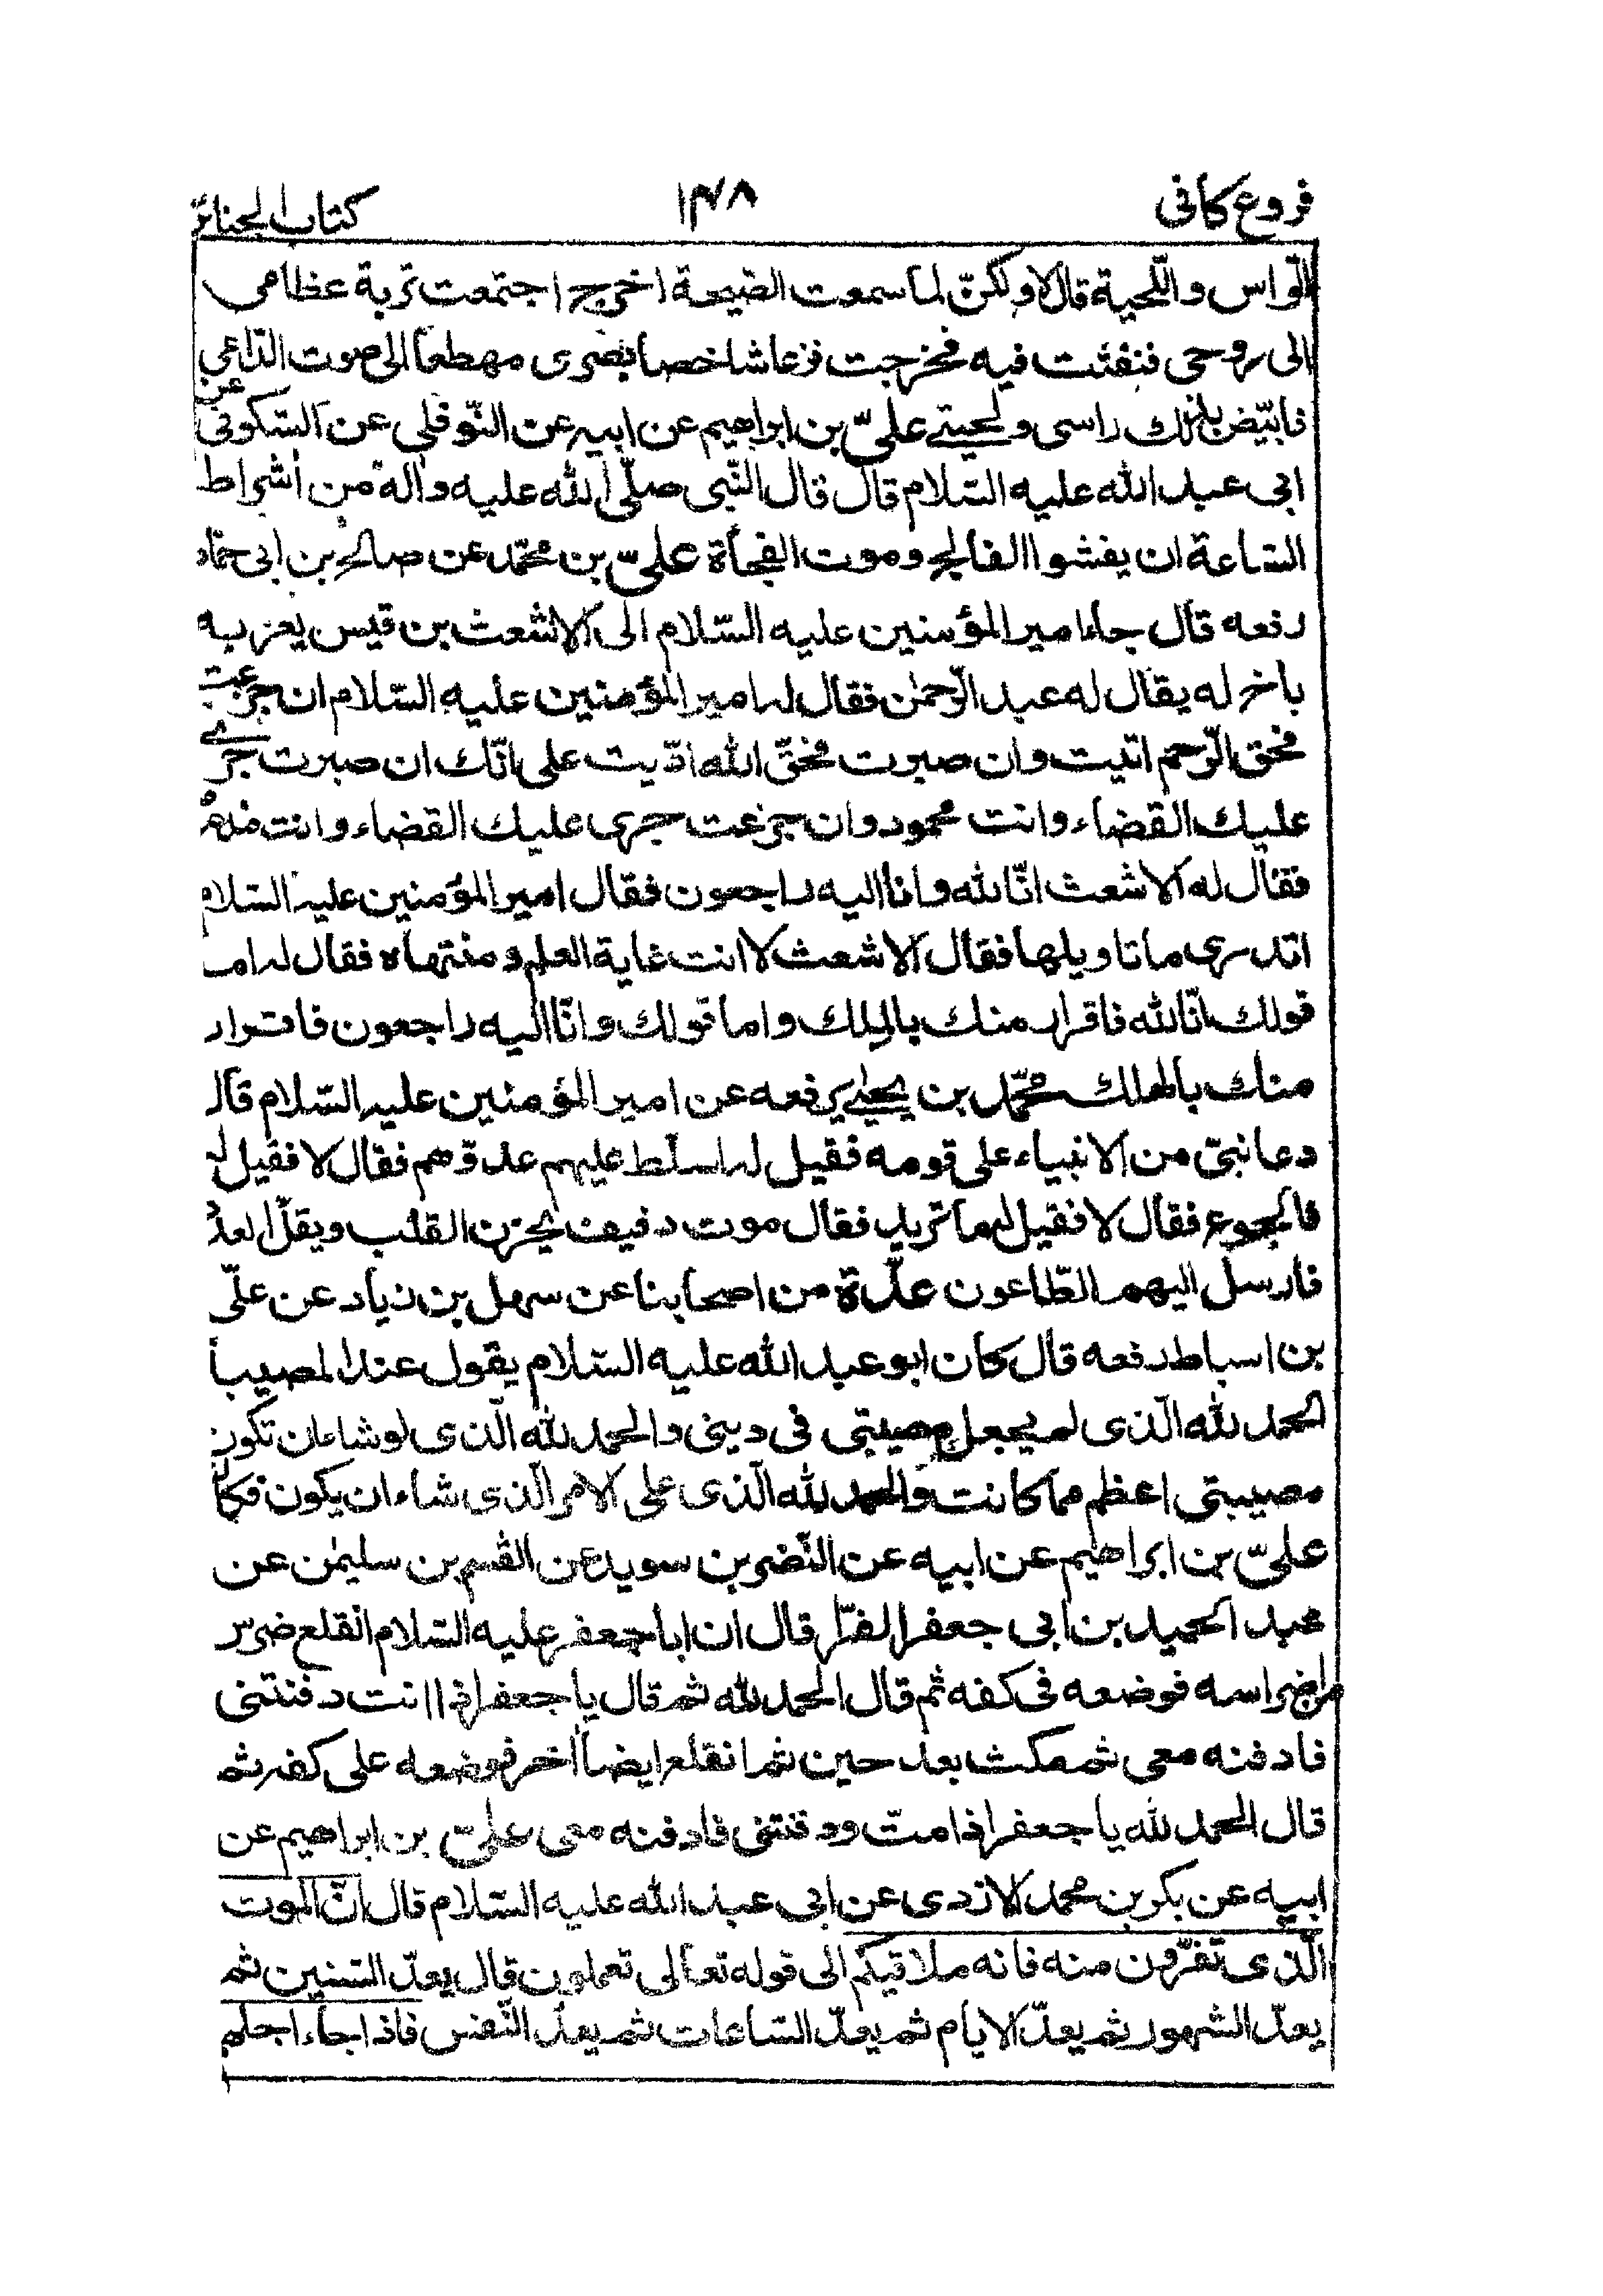 فروع كافى ١٣٨ كتاب الجنائز
الرّاس واللّحية قال لا ولكنّ لما سمعت الصّيحة اخرج اجتمعت تربة عظامى
الى روحى فنفثت فيه فخرجت فزعا شاخصا بصرى مهطعا الى صوت الدّاعى
فابيّض بذلك راسى ولحيتے علىّ بن ابراهيم عن ابيه عن النّوفلى عن السّكونى عن
ابى عبد الله عليه السّلام قال قال النّبى صلّى الله عليه واله من اشراط
السّاعة ان يفشوا الفالج وموت الفجأة علىّ بن محمّد عن صالح بن ابى حمّاد
رفعه قال جاء امير المؤمنين عليه السّلام الى الاشعث بن قيس يعزيه
باخ له يقال له عبد الرّحمٰن فقال له امير المؤمنين عليه السّلام ان جزعت
فحق الرّحم اتيت وان صبرت فحقّ الله ادّيت على انّك ان صبرت جرے
عليك القضاء وانت محمود وان جزعت جرى عليك القضاء وانت مذموم
فقال له الاشعث انّا لله وانا اليه راجعون فقال امير المؤمنين عليه السّلام
اتدرى ما تاويلها فقال الاشعث لا انت غاية العلم ومنتهاه فقال له اما
قولك انّا لله فاقرار منك بالملك واما قولك وانّا اليه راجعون فاقرار
منك بالهلك محمّد بن يحيٰے يرفعه عن امير المؤمنين عليه السّلام قال
دعا نبىّ من الانبياء على قومه فقيل له اسلّط عليهم عدوّهم فقال لا فقيل له
فالجوع فقال لا فقيل له ما تريد فقال موت دفيف يحزن القلب ويقلّ العدد
فارسل اليهم الطّاعون عدّة من اصحابنا عن سهل بن زياد عن علىّ
بن اسباط رفعه قال كان ابو عبد الله عليه السّلام يقول عند المصيبة
الحمد لله الّذى لم يجعل مصيبتى فى دينى والحمد لله الّذى لو شاء ان تكون
مصيبتى اعظم مما كانت والحمد لله الّذى على الامر الّذى شاء ان يكون فكان
علىّ بن ابراهيم عن ابيه عن النّضر بن سويد عن القٰسم بن سليمٰن عن
عبد الحميد بن ابى جعفر الفرّا قال ان ابا جعفر عليه السّلام انقلع ضرس
من اضراسه فوضعه فى كفه ثم قال الحمد لله ثم قال يا جعفر اذا انت دفنتنى
فادفنه معى ثم مكث بعد حين ثم انقلع ايضا اخر فوضعه على كفه ثم
قال الحمد لله يا جعفر اذا متّ ودفنتنى فادفنه معى علىّ بن ابراهيم عن
ابيه عن بكر بن محمد الازدى عن ابى عبد الله عليه السّلام قال انّ الموت
الّذى تفرّون منه فانه ملاقيكم الى قوله تعالى تعملون قال يعدّ السّنين ثم
يعدّ الشهور ثم يعدّ الايام ثم يعدّ السّاعات ثم يعدّ النّفس فاذا جاء اجلهم